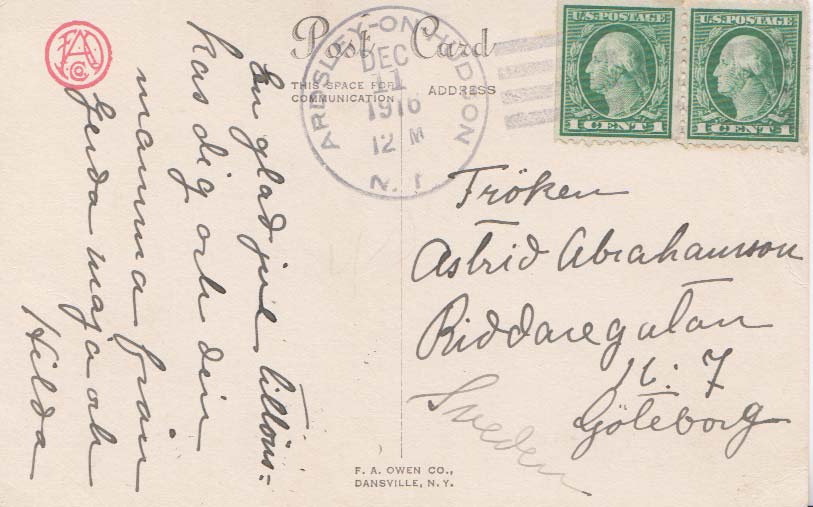 Post Card
THIS SPACE FOR
COMMUNICATION
ADDRESS
ARDSLEY-ON-HUDSON
DEC
11
1916
12 M
N.Y.
U.S. POSTAGE
1 CENT 1
U.S. POSTAGE
1 CENT 1
En glad jul tillöns=
kas dig och din
mamma från
Gerda maja och
Hilda
Fröken
Astrid Abrahamsson
Riddaregatan
N: 7
Göteborg
Sweden
F. A. OWEN CO.,
DANSVILLE, N.Y.